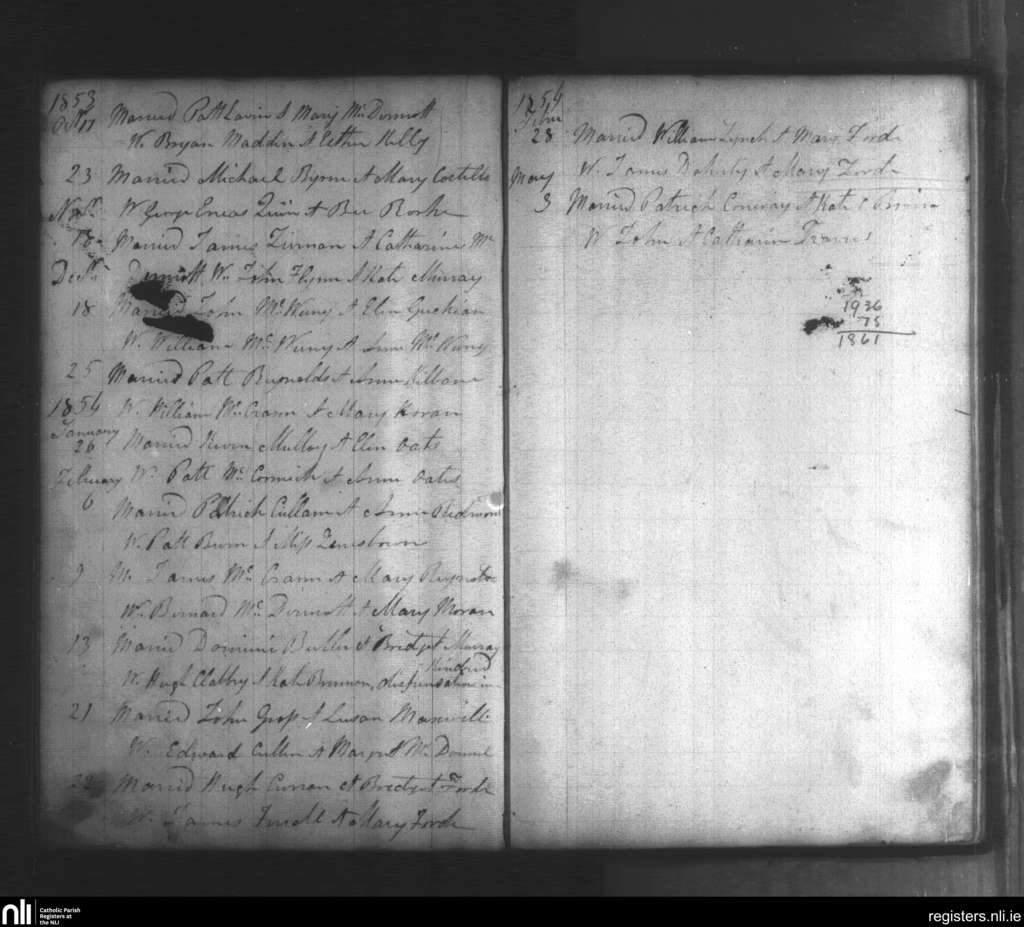 1853
Oct 17 Married Patt Lavin & Mary McDermott
W. Bryan Madden & Esther Kelly
23 Married Michael Byrne & Mary Costello
Nov W George Eneas Quinn & Bee Rorke
18 Married James & Catharine Mc
Dec Dermott W. John Flynn & Kate Murray
18 Married John McWeeny & Elen Guckian
W. William McWeeny & Anne McWeeny
25 Married Patt Reynolds & Anne Kilbane
1854 W. William McCrann & Mary Horan
January
26 Married Kevin Mulloy & Elen Oats
February W. Patt McCormick & Anne Oats
6 Married Patrick Cullam & Anne
W. Patt Beirn & Miss
9 M. James McCrann & Mary Reynolds
W. Bernard McDermott & Mary Moran
13 Married Butler & Bridget Murray
Kindred
W. Hugh Clabby & Kate Brennan, dispensation in
21 Married John & Susan
W. Edward Cullen & Margret
22 Married Hugh Curran & Bridget Forde
W. James & Mary Forde
1854
Febru
28 Married William Lynch & Mary Forde
W. James Doherty & Mary Forde
May
3 Married Patrick Conway & Kate
W John & Catharine
1936
75
1861
nli Catholic Parish
Registers at
the NLI
registers.nli.ie